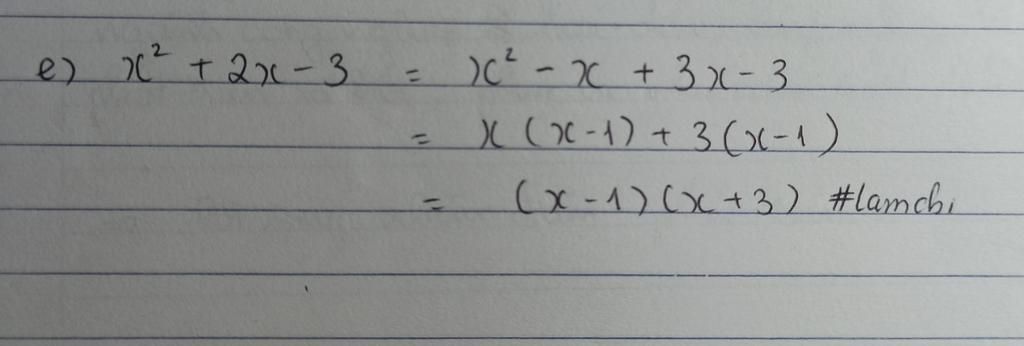 e) x² + 2x - 3 = x² - x + 3x - 3
= x (x - 1) + 3 (x - 1)
= (x - 1) (x + 3) #lamchi